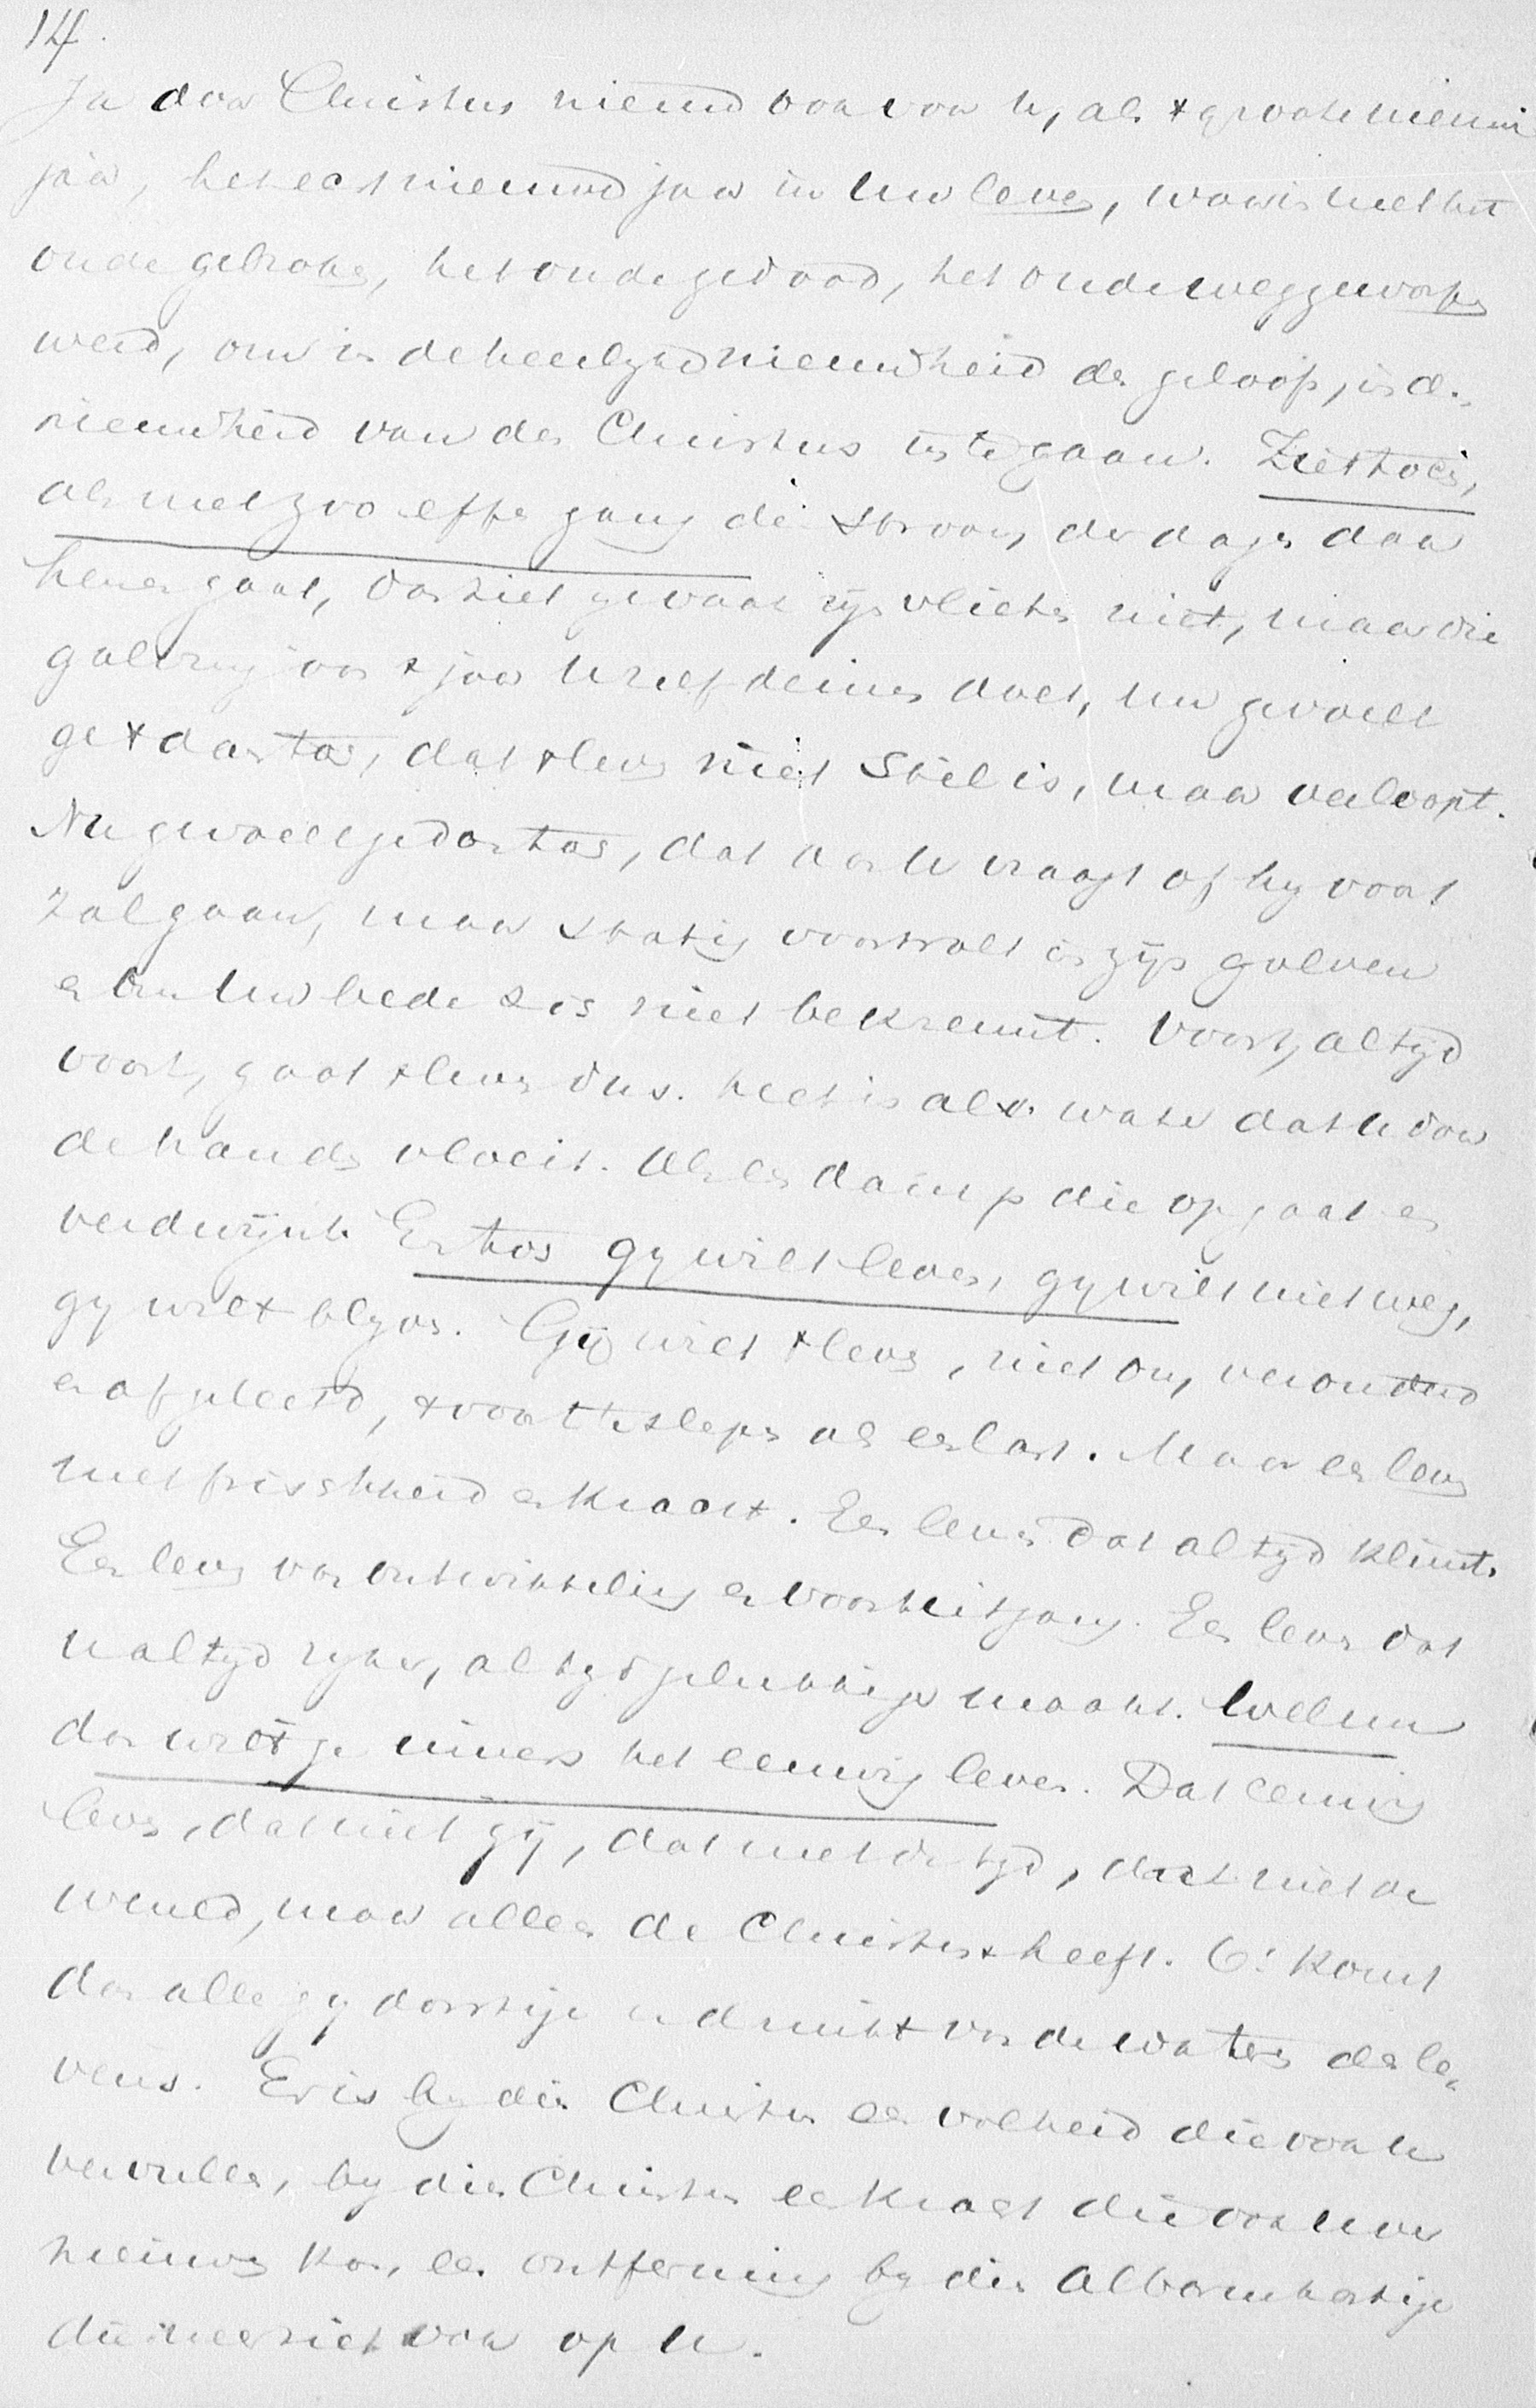 14.
Ja door Christus nieuwd ook voor U, als t groote nieuw
jaar, het echt nieuwd jaar in Uw leven, waarin met het
oude gebroken, het oude gedood, het oude weggeworpen
werd, om in de heerlyke nieuwheid des geloofs, in de
nieuwheid van den Christus in te gaan. Ziet toch,
al met zoo effen gang de stroom der dagen daar
henen gaat, dan ziet ge vaak zyn vlieten niet, maar die
golving van t jaar U zelf deinen doet, nu gevoelt
ge t dan toch, dat t leven niet stil is, maar verloopt.
Nu gevoelt ge dan toch, dat aan U vraagt of hy voort
zal gaan, maar statig voortrolt in zijn golven
en om Uw bede zich niet bekreunt. Voort, altyd
voort, gaat t leven dus. Het is als water dat U door
de handen vloeit. Als een damp die opgaat en
verdwijnt. En toch gy wilt leven, gy wilt niet weg,
gy wilt blyven. Gij wilt t leven, niet om, verouderd
en afgeleefd, t voort te slepen als een last. Maar een leven
met frischheid en kracht. Een leven dat altyd klimt.
Een leven van ontwikkeling en vooruitgang. Een leven dat
U altyd ryker, altyd gelukkiger maakt. Welnu
dan wilt ge immers het eeuwig leven. Dat eeuwig
leven, dat niet gij, dat niet de tyd, dat niet de
wereld, maar alleen de Christus heeft. O! komt
dan alle gy dorstige en drinkt van de wateren des le,
vens. Er is by dien Christus een volheid die ook U
vervullen, by dien Christus een kracht die ook U ver
nieuwen kan, een ontferming by dien Albarmhartige
die neerziet ook op U.